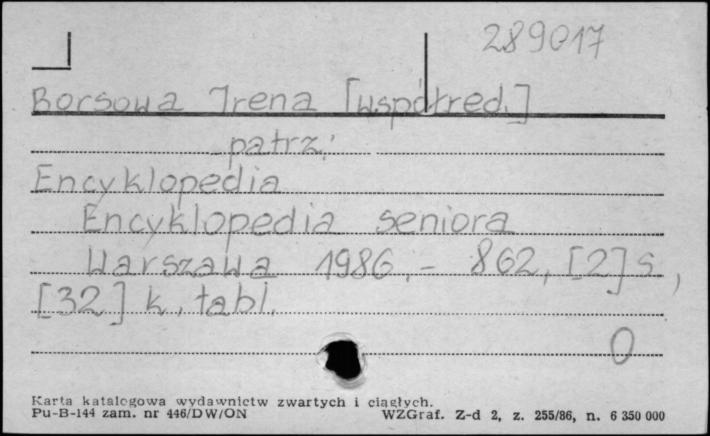 289017
Borsowa Irena [współred.]
patrz:
Encyklopedia
Encyklopedia seniora
Warszawa 1986. - 862, [2] s.,
[32] k. tabl.
0
Karta katalogowa wydawnictw zwartych i ciągłych.
Pu-B-144 zam. nr 446/DW/ON WZGraf. Z-d 2, z. 255/86, n. 6 350 000